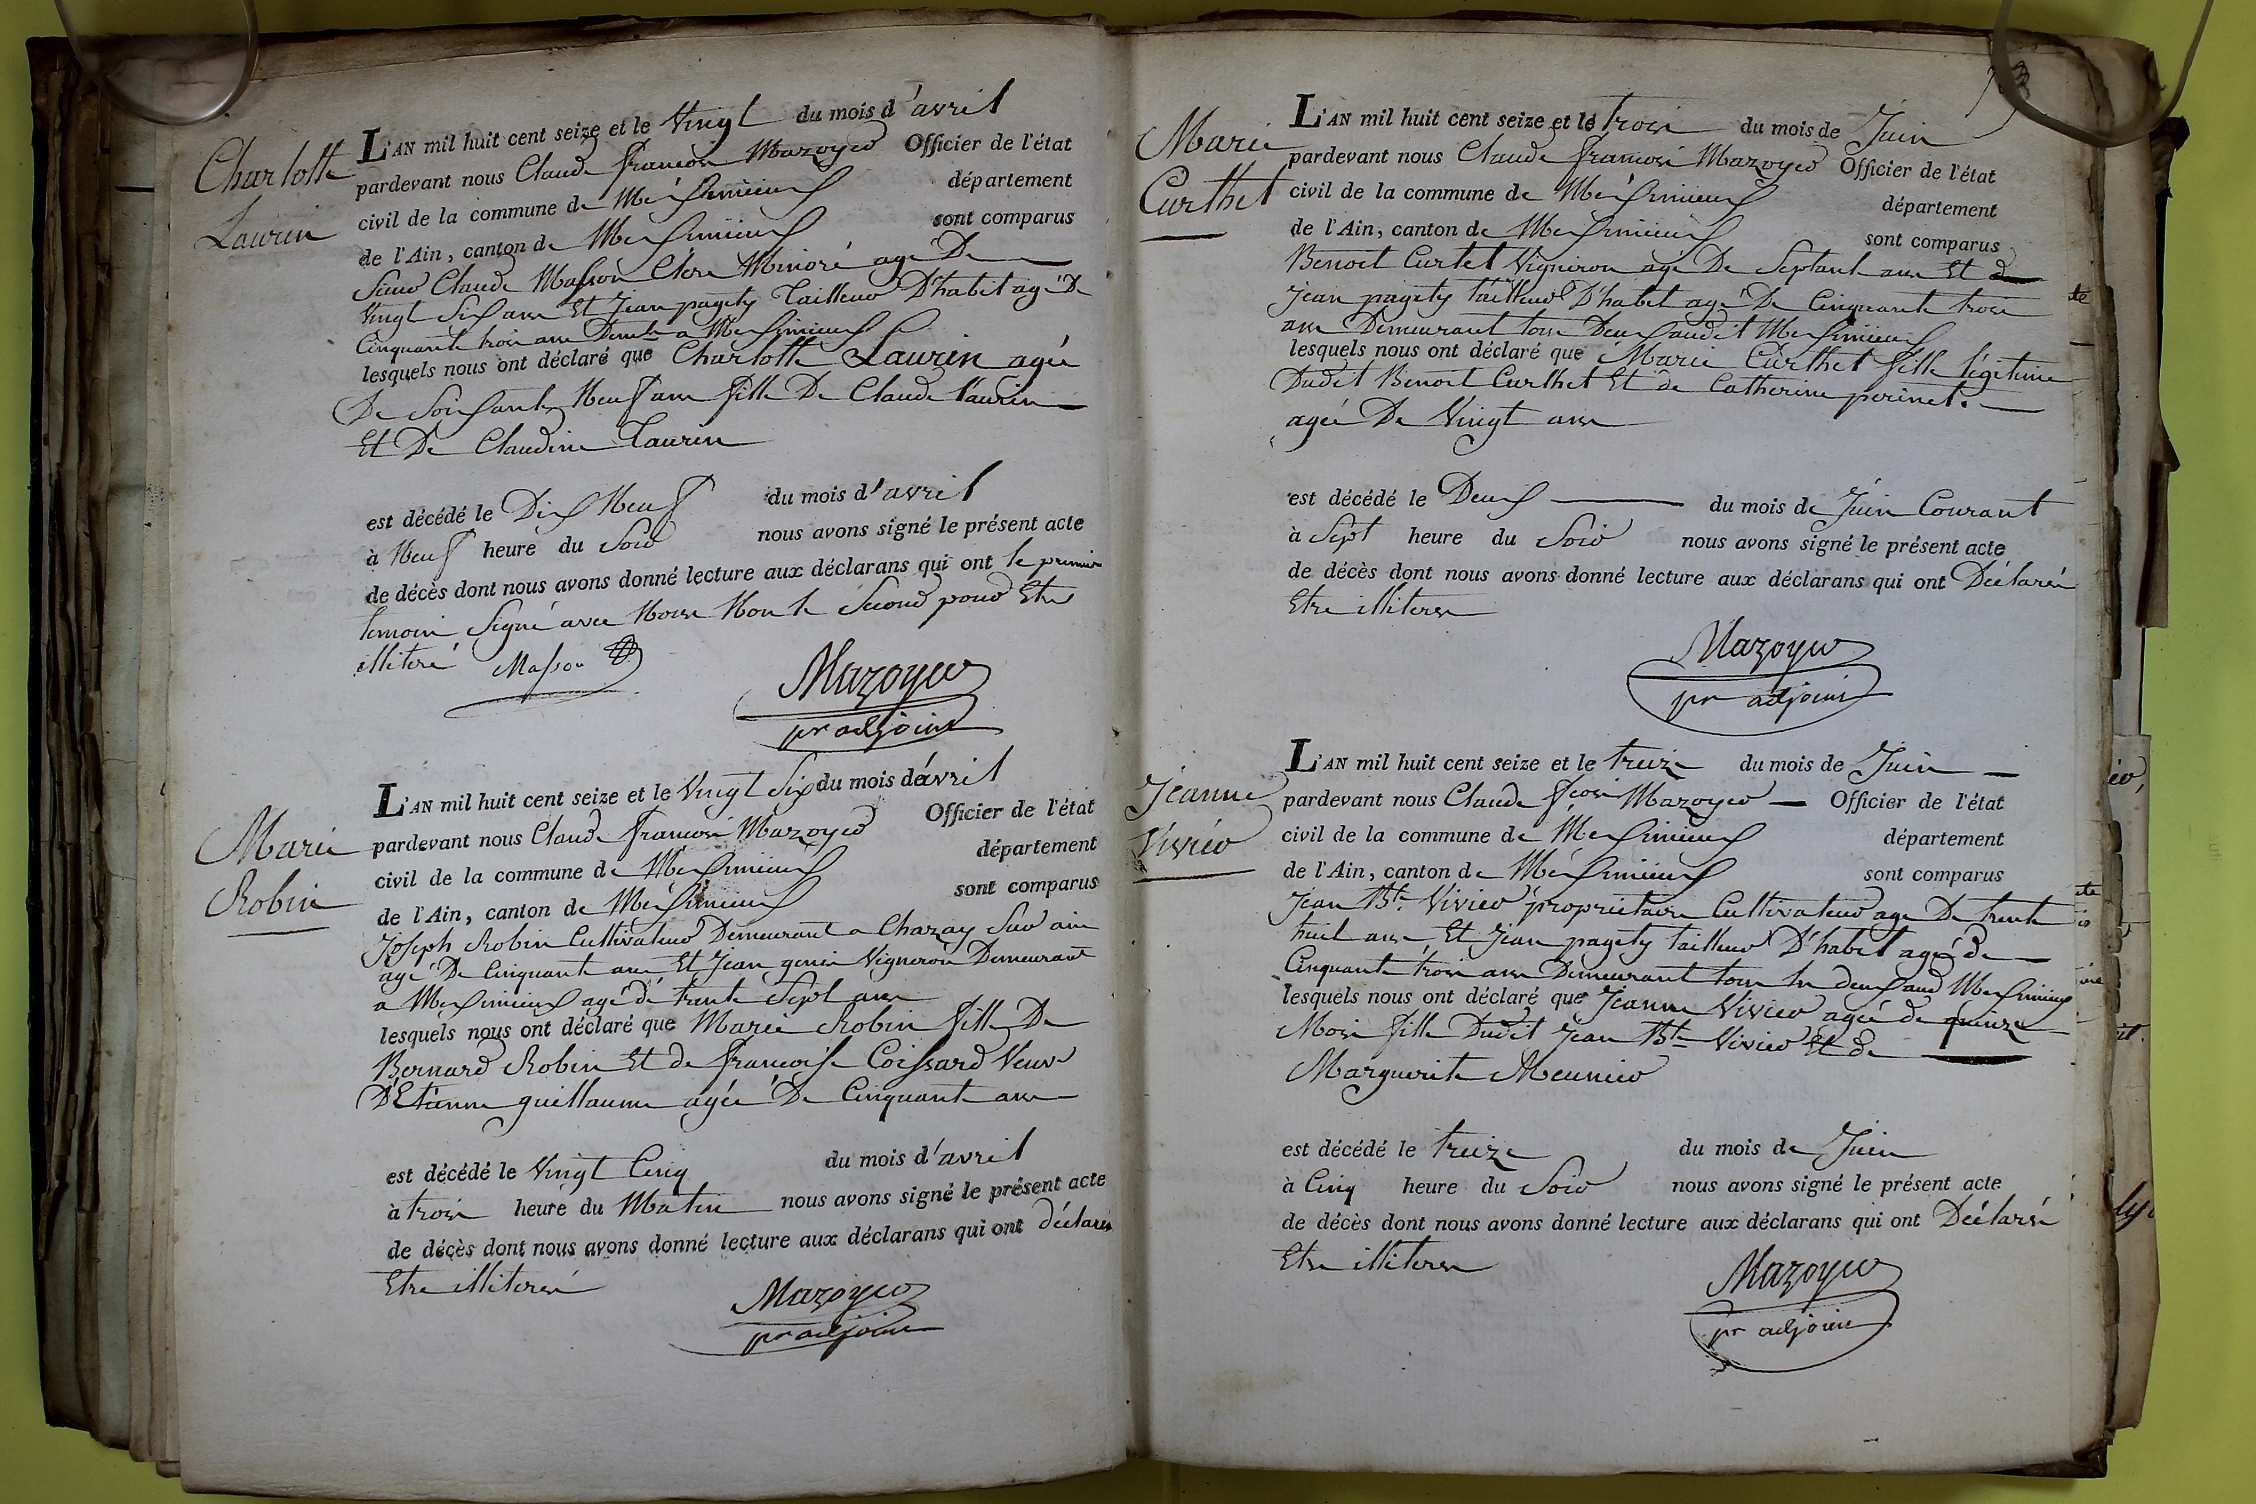 Charlotte
Laurin
L'AN mil huit cent seize et le Vingt du mois d'avril
pardevant nous Claude francois Mazoyer Officier de l'état
civil de la commune de Meximieux département
de l'Ain, canton de Meximieux sont comparus
Sieur Claude Masson Clerc Minoré agé De
Vingt Six ans Et Jean pagety Tailleur D'habit agé De
Cinquante trois ans Demt a Meximieux
lesquels nous ont déclaré que Charlotte Laurin agée
De Soixante Neuf ans fille De Claude Laurin
Et De Claudine Laurin
est décédé le Dix Neuf du mois d'avril
à Neuf heure du Soir nous avons signé le présent acte
de décès dont nous avons donné lecture aux déclarans qui ont le premier
temoin Signé avec Nous Non le Second pour Etre
illiteré Masson
Mazoyer
pr adjoint
Marie
Robin
L'AN mil huit cent seize et le Vingt Six du mois d'avril
pardevant nous Claude francois Mazoyer Officier de l'état
civil de la commune de Meximieux département
de l'Ain, canton de Méximieux sont comparus
Joseph Robin Cultivateur Demeurant a Chazay Sur ain
agé De Cinquante ans Et Jean genin Vigneron Demeurant
a Meximieux agé de trente Sept ans
lesquels nous ont déclaré que Marie Robin fille De
Bernard Robin Et de francoise Coissard Veuve
D'Etienne guillaume agée De Cinquante ans
est décédé le Vingt Cinq du mois d'avril
à trois heure du Matin nous avons signé le présent acte
de décès dont nous avons donné lecture aux déclarans qui ont déclarés
Etre illiterés
Mazoyer
pr adjoint
Marie
Curthet
L'AN mil huit cent seize et le trois du mois de Juin
pardevant nous Claude francois Mazoyer Officier de l'état
civil de la commune de Méximieux département
de l'Ain, canton de Meximieux sont comparus
Benoit Curtet Vigneron agé De Septante ans Et de
Jean pagety tailleur D'habit agé De Cinquante trois
ans Demeurant tous Deux audit Meximieux
lesquels nous ont déclaré que Marie Curthet fille légitime
Dudit Benoit Curthet Et de Catherine perinet.
agée De Vingt ans
est décédé le Deux du mois de Juin Courant
à Sept heure du Soir nous avons signé le présent acte
de décès dont nous avons donné lecture aux déclarans qui ont Déclarés
Etre illiteres
Mazoyer
pr adjoint
Jeanne
Vivier
L'AN mil huit cent seize et le treize du mois de Juin
pardevant nous Claude fcois Mazoyer Officier de l'état
civil de la commune de Meximieux département
de l'Ain, canton de Méximieux sont comparus
Jean Bte Vivier propriétaire Cultivateur age De trente
huit ans Et Jean pagety tailleur D'habit agé de
Cinquante trois ans Demeurant tous les deux aud Meximieux
lesquels nous ont déclaré que Jeanne Vivier agée de quinze
Mois fille Dudit Jean Bte Vivier Et de
Marguerite Meunier
est décédé le treize du mois de Juin
à Cinq heure du Soir nous avons signé le présent acte
de décès dont nous avons donné lecture aux déclarans qui ont Déclarés
Etre illiteres
Mazoyer
pr adjoint